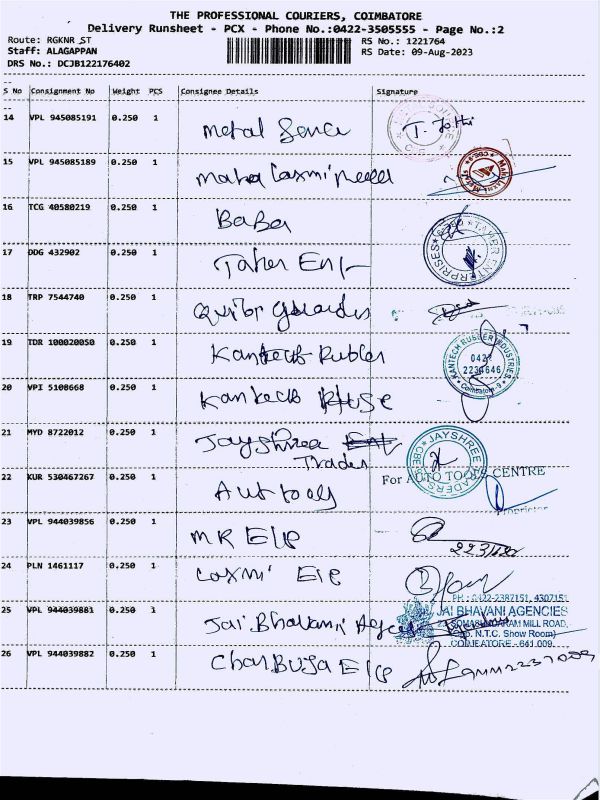 THE PROFESSIONAL COURIERS, COIMBATORE
Delivery Runsheet - PCX - Phone No.:0422-3505555 - Page No.:2
Route: RGKNR_ST RS No.: 1221764
Staff: ALAGAPPAN RS Date: 09-Aug-2023
DRS No.: DCJB122176402
S No Consignment No Weight PCS Consignee Details Signature
14 VPL 945085191 0.250 1 Metal Source T. Jothi
15 VPL 945085189 0.250 1 Maha Laxmi Metal
16 TCG 40580219 0.250 1 BaBa
17 DDG 432902 0.250 1 Taher Ent
TAHER ENTERPRISES
18 TRP 7544740 0.250 1
19 TDR 100020050 0.250 1 Kantech Rubber
KANTECH RUBBER INDUSTRIES
0422
2234646
Coimbatore-9
20 VPI 5108668 0.250 1 Kantech House
21 MYD 8722012 0.250 1 Jayshree Ent
Trades
JAYSHREE TRADERS
22 KUR 530467267 0.250 1 Autools
For AUTO TOOLS CENTRE
Proprietor
23 VPL 944039856 0.250 1 MR E/P
24 PLN 1461117 0.250 1 Laxmi E/P
25 VPL 944039881 0.250 1 Jai Bhavani Agcee
PH : 0422-2387151, 4307151
JAI BHAVANI AGENCIES
SOMASUNDARAM MILL ROAD,
(Opp. N.T.C. Show Room)
COIMBATORE - 641 009.
26 VPL 944039882 0.250 1 CharBuja E/P